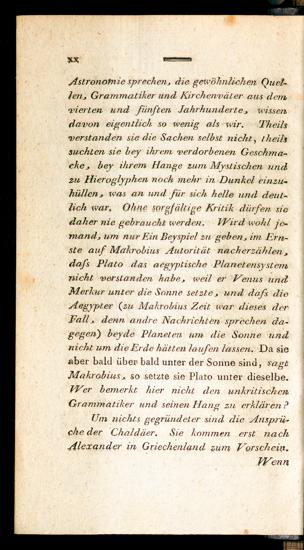 xx
Astronomie sprechen, die gewöhnlichen Quel-
len, Grammatiker und Kirchenväter aus dem
vierten und fünften Jahrhunderte, wissen
davon eigentlich so wenig als wir. Theils
verstanden sie die Sachen selbst nicht, theils
suchten sie bey ihrem verdorbenen Geschma-
cke, bey ihrem Hange zum Mystischen und
zu Hieroglyphen noch mehr in Dunkel einzu-
hüllen, was an und für sich helle und deut-
lich war. Ohne sorgfältige Kritik dürfen sie
daher nie gebraucht werden. Wird wohl je-
mand, um nur Ein Beyspiel zu geben, im Ern-
ste auf Makrobius Autorität nacherzählen,
daſs Plato das aegyptische Planetensystem
nicht verstanden habe, weil er Venus und
Merkur unter die Sonne setzte, und daſs die
Aegypter (zu Makrobius Zeit war dieses der
Fall, denn andre Nachrichten sprechen da-
gegen) beyde Planeten um die Sonne und
nicht um die Erde hätten laufen lassen. Da sie
aber bald über bald unter der Sonne sind, sagt
Makrobius, so setzte sie Plato unter dieselbe.
Wer bemerkt hier nicht den unkritischen
Grammatiker und seinen Hang zu erklären?
Um nichts gegründeter sind die Ansprü-
che der Chaldäer. Sie kommen erst nach
Alexander in Griechenland zum Vorschein.
Wenn